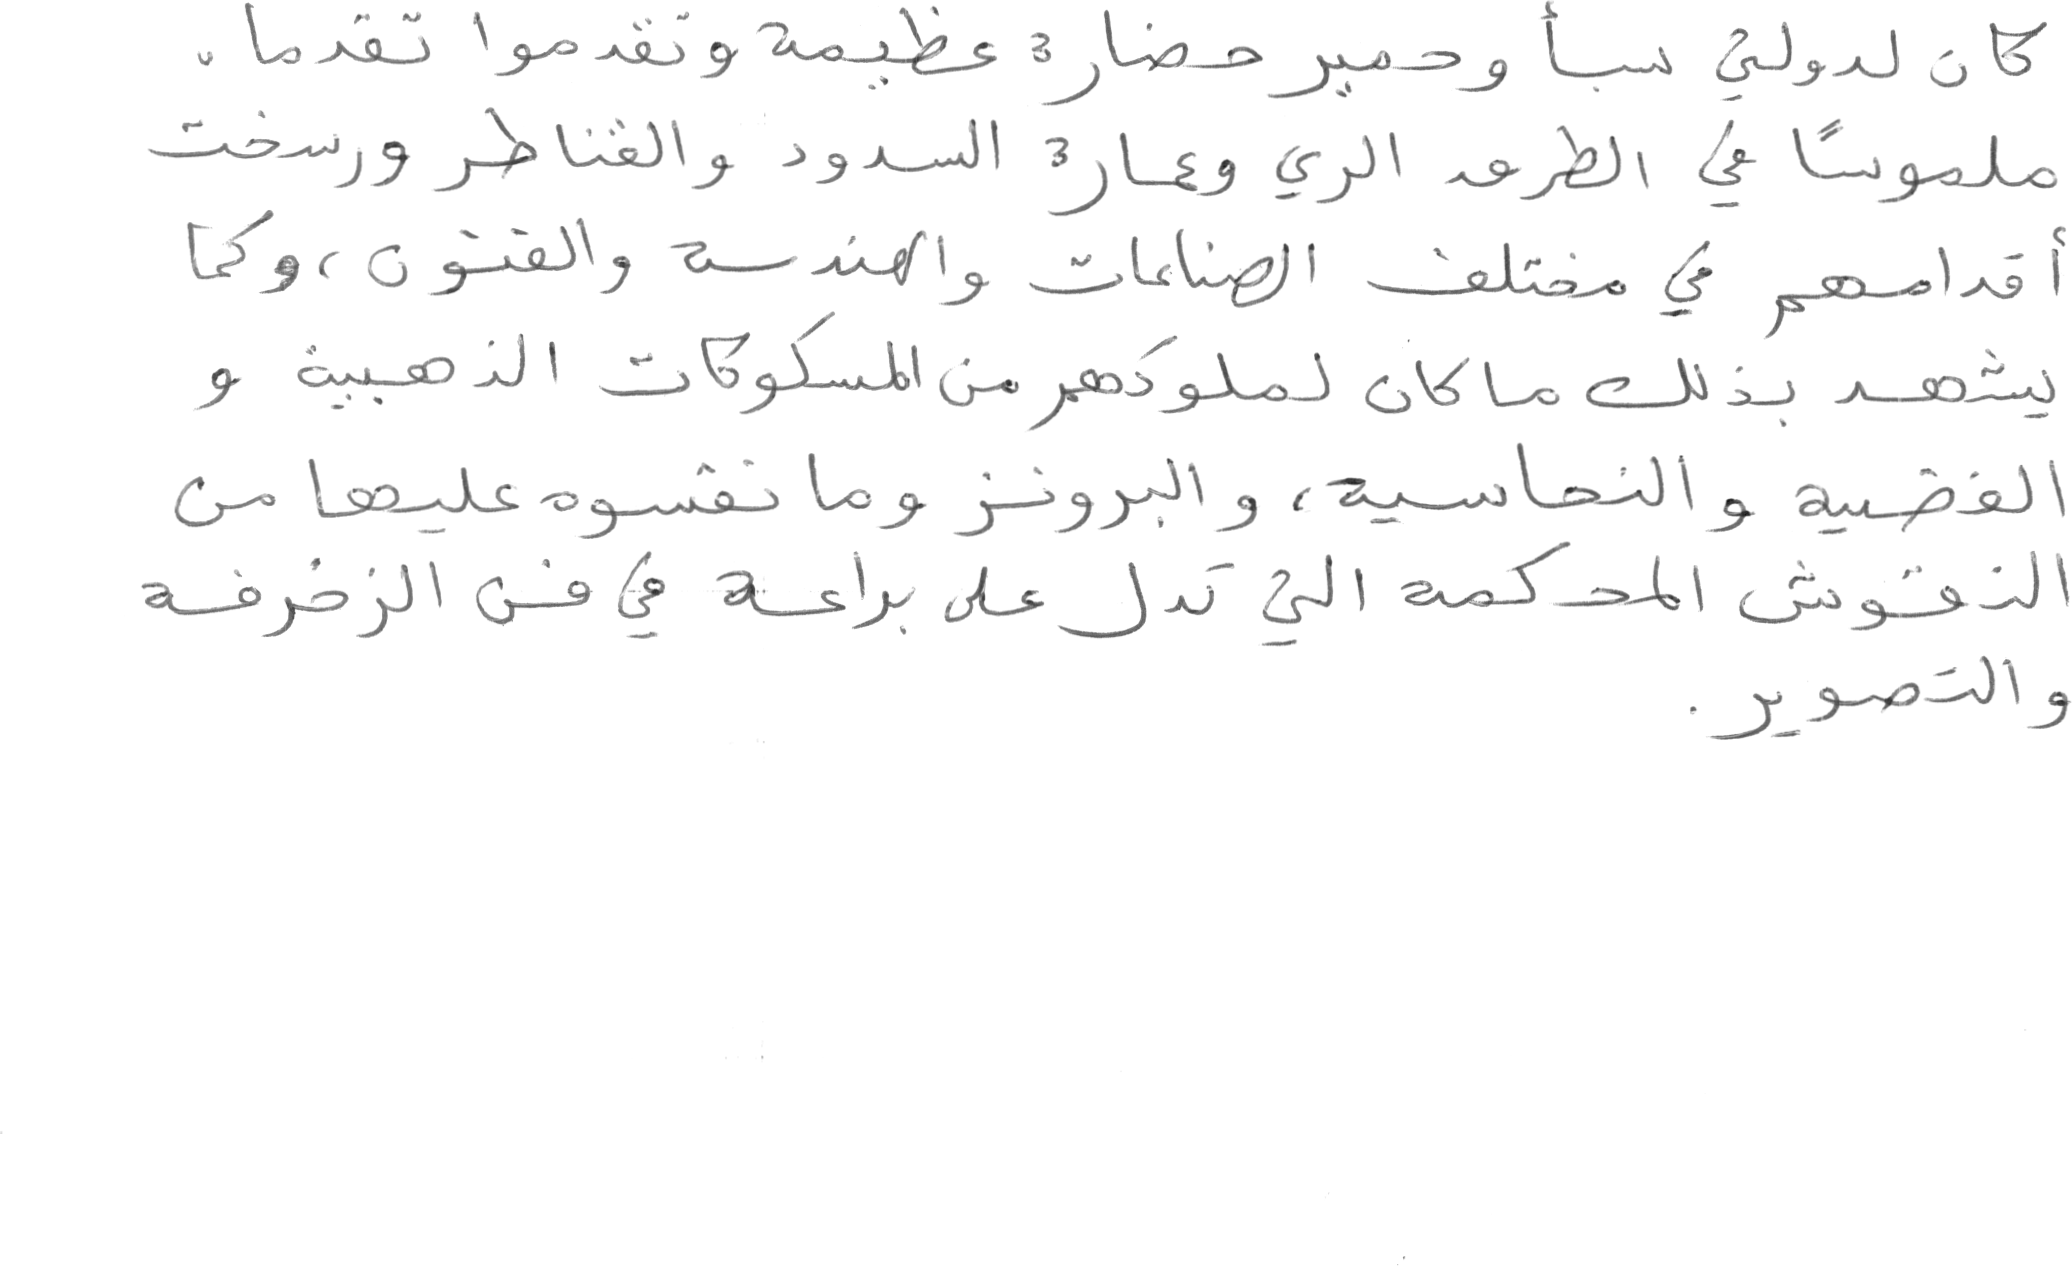 كان لدولتي سبأ وحمير حضارة عظيمة وتقدموا تقدما.
ملموسًا في الطرق الري وعمارة السدود والقناطر ورسخت
أقدامهم في مختلف الصناعات والهندسة والفنون، وكما
يشهد بذلك ما كان لملوكهم من المسكوكات الذهبية و
الفضية والنحاسية، والبرونز وما نقسوه عليها من
النقوش المحكمة التي تدل على براعة في فن الزخرفة
والتصوير.